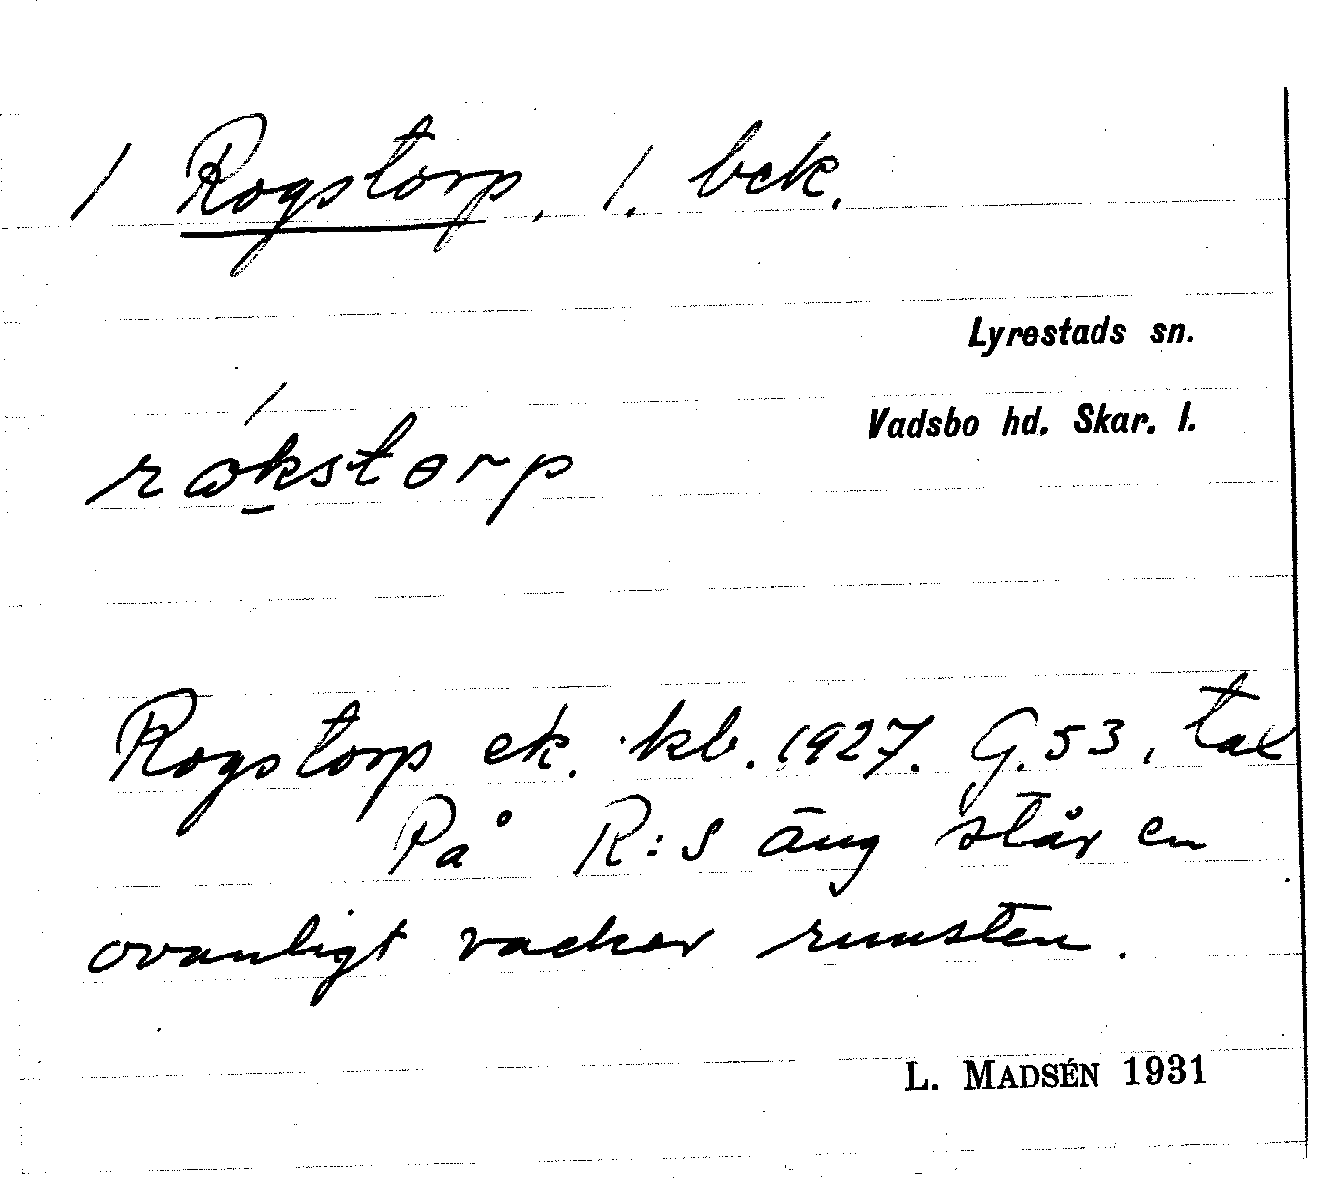 / Rogstorp. 1. bek.
Lyrestads sn.
Vadsbo hd. Skar. l.
rókstorp
Rogstorp ek. kb. 1927. G. 53, tal
På R:s äng står en
ovanligt vacker runsten.
L. MADSÉN 1931